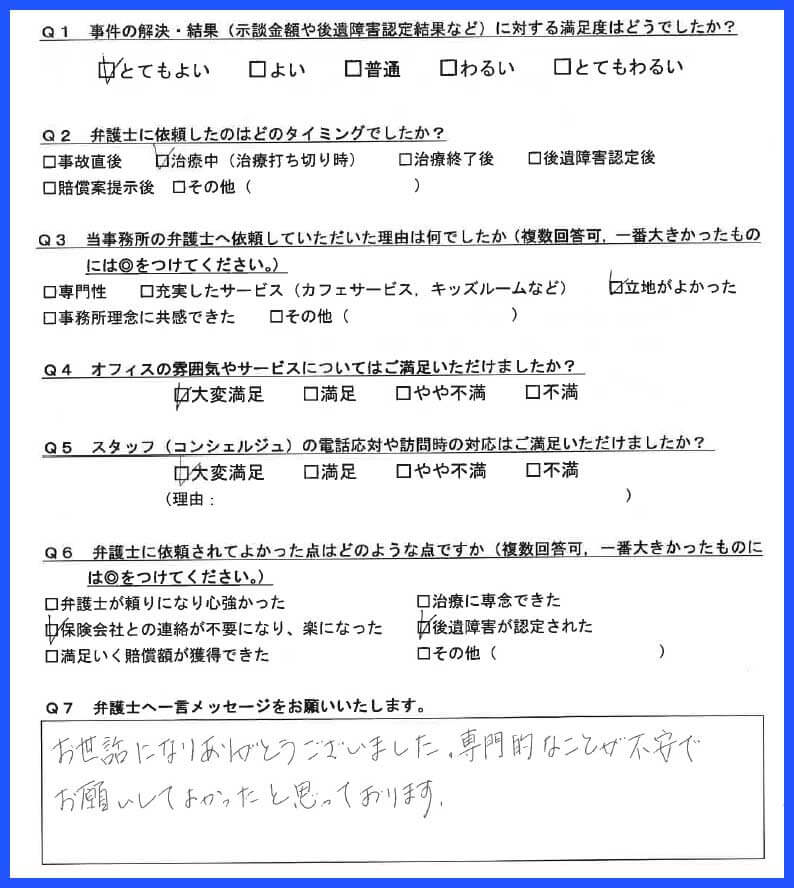 Q1 事件の解決・結果（示談金額や後遺障害認定結果など）に対する満足度はどうでしたか？
☑とてもよい □よい □普通 □わるい □とてもわるい
Q2 弁護士に依頼したのはどのタイミングでしたか？
□事故直後 ☑治療中（治療打ち切り時） □治療終了後 □後遺障害認定後
□賠償案提示後 □その他（ ）
Q3 当事務所の弁護士へ依頼していただいた理由は何でしたか（複数回答可，一番大きかったもの
には◎をつけてください。）
□専門性 □充実したサービス（カフェサービス，キッズルームなど） ☑立地がよかった
□事務所理念に共感できた □その他（ ）
Q4 オフィスの雰囲気やサービスについてはご満足いただけましたか？
☑大変満足 □満足 □やや不満 □不満
Q5 スタッフ（コンシェルジュ）の電話応対や訪問時の対応はご満足いただけましたか？
☑大変満足 □満足 □やや不満 □不満
（理由： ）
Q6 弁護士に依頼されてよかった点はどのような点ですか（複数回答可，一番大きかったものに
は◎をつけてください。）
□弁護士が頼りになり心強かった □治療に専念できた
☑保険会社との連絡が不要になり、楽になった ☑後遺障害が認定された
□満足いく賠償額が獲得できた □その他（ ）
Q7 弁護士へ一言メッセージをお願いいたします。
お世話になりありがとうございました。専門的なことが不安で
お願いしてよかったと思っております。